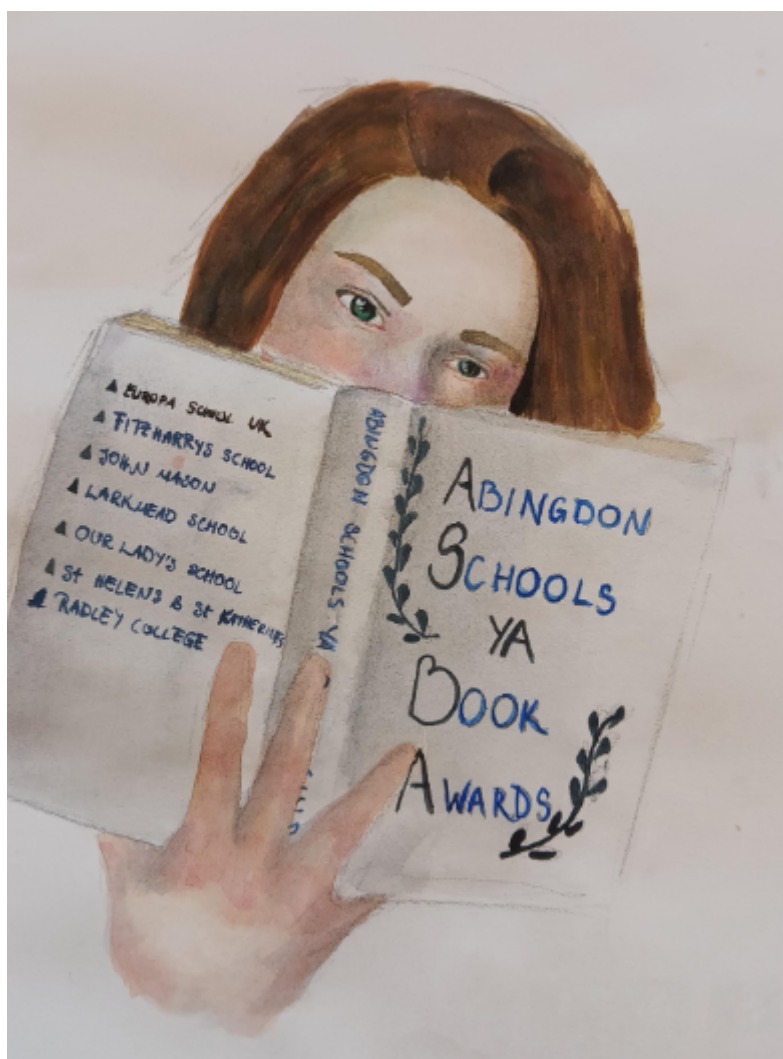 EUROPA SCHOOL UK
FITZHARRYS SCHOOL
JOHN MASON
LARKMEAD SCHOOL
OUR LADY'S SCHOOL
St HELENS & St KATHERINES
RADLEY COLLEGE
ABINGDON SCHOOLS YA
ABINGDON
SCHOOLS
YA
BOOK
AWARDS